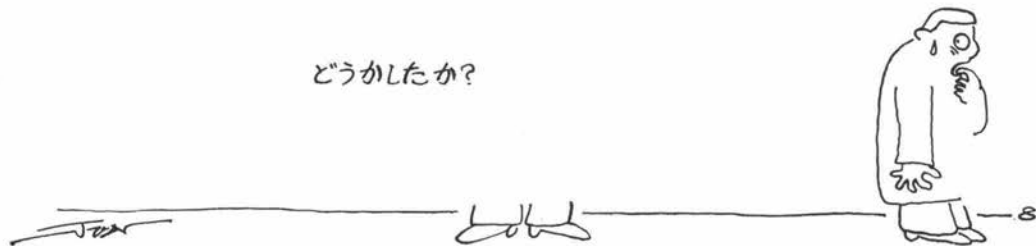 どうかしたか?